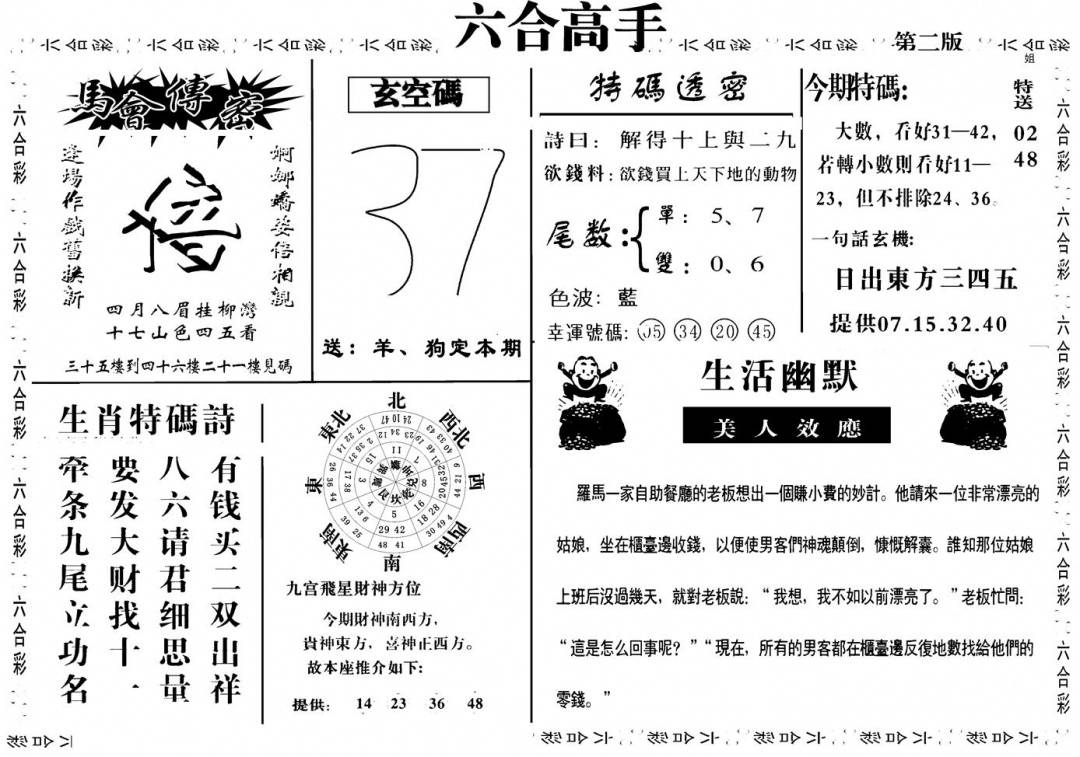 六合高手
第二版
馬會傳密
婀娜嬌姿倍相親
逢場作戲舊換新
四月八眉挂柳灣
十七山色四五看
三十五樓到四十六樓二十一樓見碼
玄空碼
37
送：羊、狗定本期
特碼透密
詩曰：解得十上與二九
欲錢料：欲錢買上天下地的動物
尾数：
單：5、7
雙：0、6
色波：藍
幸運號碼：05 34 20 45
今期特碼：
特送
02
48
大數，看好31—42，
若轉小數則看好11—
23，但不排除24、36。
一句話玄機：
日出東方三四五
提供07.15.32.40
生肖特碼詩
有钱买二双出祥
八六请君细思量
要发大财找十一
牵条九尾立功名
北
西北
西
西南
南
東南
東
東北
九宫飛星財神方位
今期財神南西方，
貴神東方，喜神正西方。
故本座推介如下：
提供： 14 23 36 48
生活幽默
美人效應
羅馬一家自助餐廳的老板想出一個賺小費的妙計。他請來一位非常漂亮的
姑娘，坐在櫃臺邊收錢，以便使男客們神魂顛倒，慷慨解囊。誰知那位姑娘
上班后沒過幾天，就對老板說：“我想，我不如以前漂亮了。”老板忙問：
“這是怎么回事呢？”“現在，所有的男客都在櫃臺邊反復地數找給他們的
零錢。”
六合彩